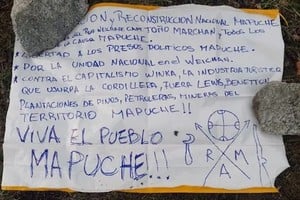 ION, RECONSTRUCCION NACIONAL MAPUCHE.
TOÑO MARCHAN, TODOS LOS
LA CAUSA MAPUCHE.
LIBERTAD A LOS PRESOS POLITICOS MAPUCHE.
• POR LA UNIDAD NACIONAL en el WEICHAN.
• CONTRA EL CAPITALISMO WINKA, LA INDUSTRIA
QUE USURPA LA CORDILLERA, FUERA LEWIS, BENETTON,
PLANTACIONES DE PINOS, PETROLERAS, MINERAS DEL
TERRITORIO MAPUCHE!!
VIVA EL PUEBLO
MAPUCHE!!!
R M
A